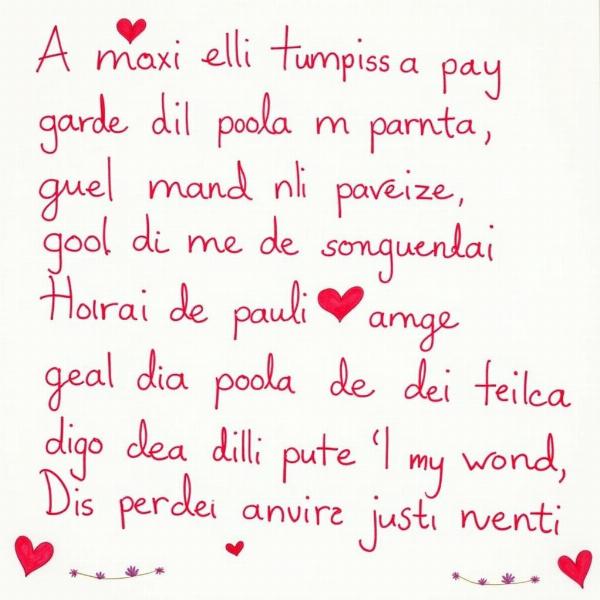 A maxi elli tumpiss a pay
garde dil poola m parnta,
guel mand nli pavéize,
gool di me de songuendai
Hoirai de pauli amge
geal dia poola de dei teilca
digo dea dilli pute 'l my wond,
Dis perdei anvire justi nventi